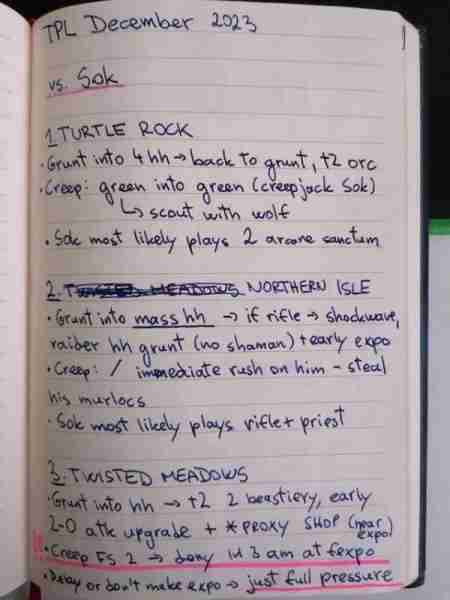 TPL December 2023
vs. Sok
1. TURTLE ROCK
• Grunt into 4 hh → back to grunt, t2 orc
• Creep: green into green (creepjack Sok)
↳ scout with wolf
• Sok most likely plays 2 arcane sanctum
2. TWISTED MEADOWS NORTHERN ISLE
• Grunt into mass hh → if rifle → shockwave,
raider hh grunt (no shaman) + early expo
• Creep: / immediate rush on him - steal
his murlocs
• Sok most likely plays rifle + priest
3. TWISTED MEADOWS
• Grunt into hh → t2 2 beastiery, early
2-0 atk upgrade + * PROXY SHOP (near
expo)
• Creep FS 2 → deny 3 am at fexpo
• Delay or don't make expo → just full pressure